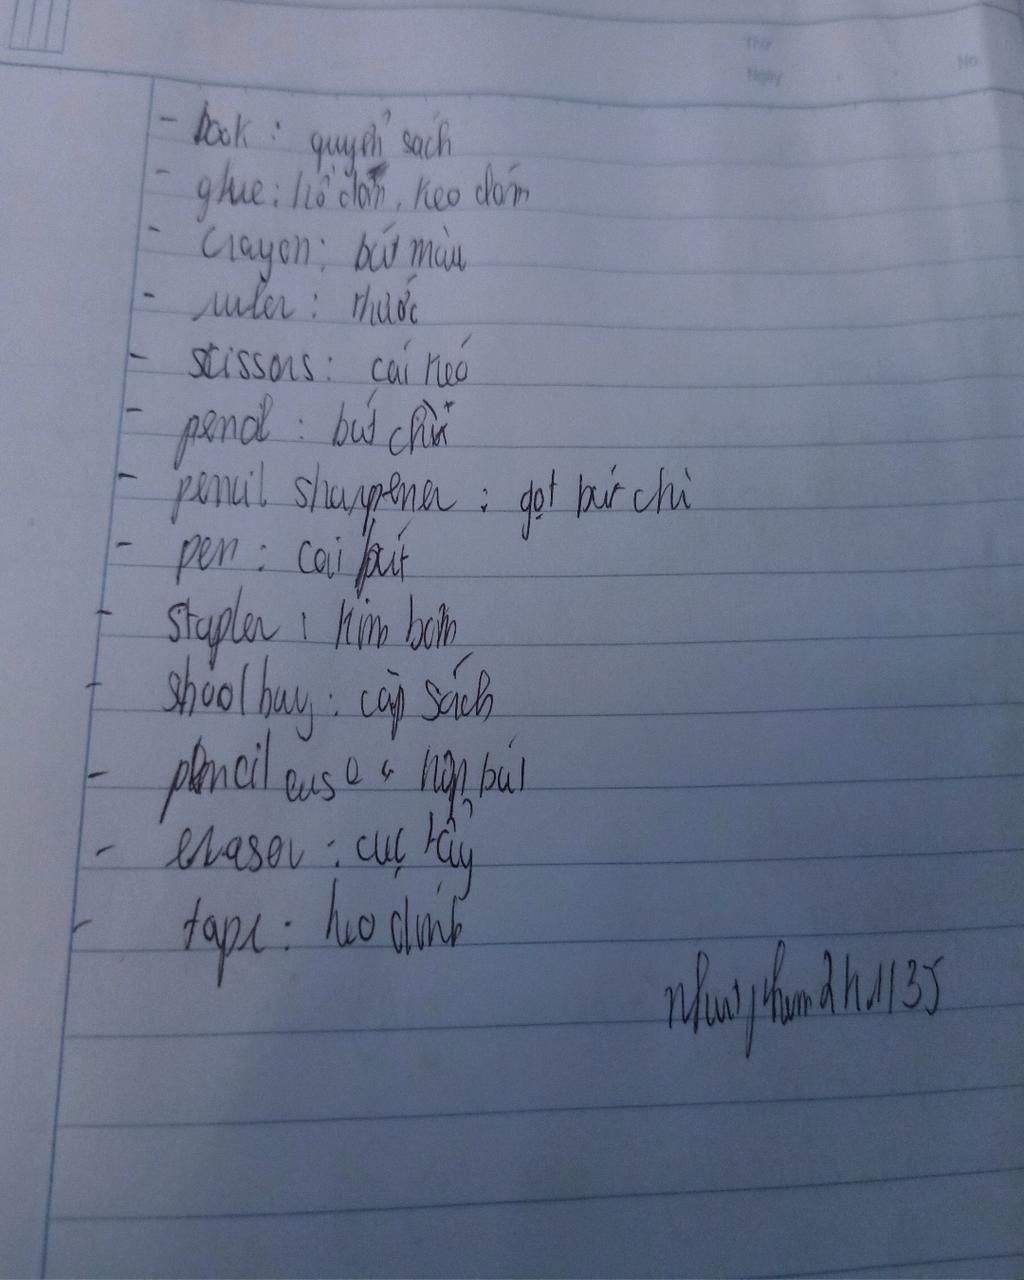 Thứ
Ngày No.
- book : quyển sách
- glue : hồ dán, keo dán
- crayon : bút màu
- ruler : thước
- scissors : cái kéo
- pencil : bút chì
- pencil sharpener : gọt bút chì
- pen : cái bút
- stapler : kim bấm
- shoolbag : cặp sách
- pencil case : hộp bút
- eraser : cục tẩy
- tape : keo dính